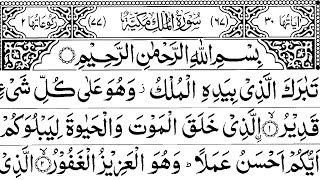 اٰیَاتُهَا ٣٠ (٦٧) سُوْرَةُ الْمُلْكِ مَكِّيَّةٌ (٧٧) رُكُوْعَاتُهَا ٢
بِسْمِ اللّٰهِ الرَّحْمٰنِ الرَّحِیْمِ
تَبٰرَكَ الَّذِیْ بِیَدِهِ الْمُلْكُ ز وَهُوَ عَلٰی كُلِّ شَیْءٍ
قَدِیْرُ ۙ ١ الَّذِیْ خَلَقَ الْمَوْتَ وَالْحَیٰوةَ لِیَبْلُوَكُمْ
اَیُّكُمْ اَحْسَنُ عَمَلًا ؕ وَهُوَ الْعَزِیْزُ الْغَفُوْرُ ۙ ٢ الَّذِیْ